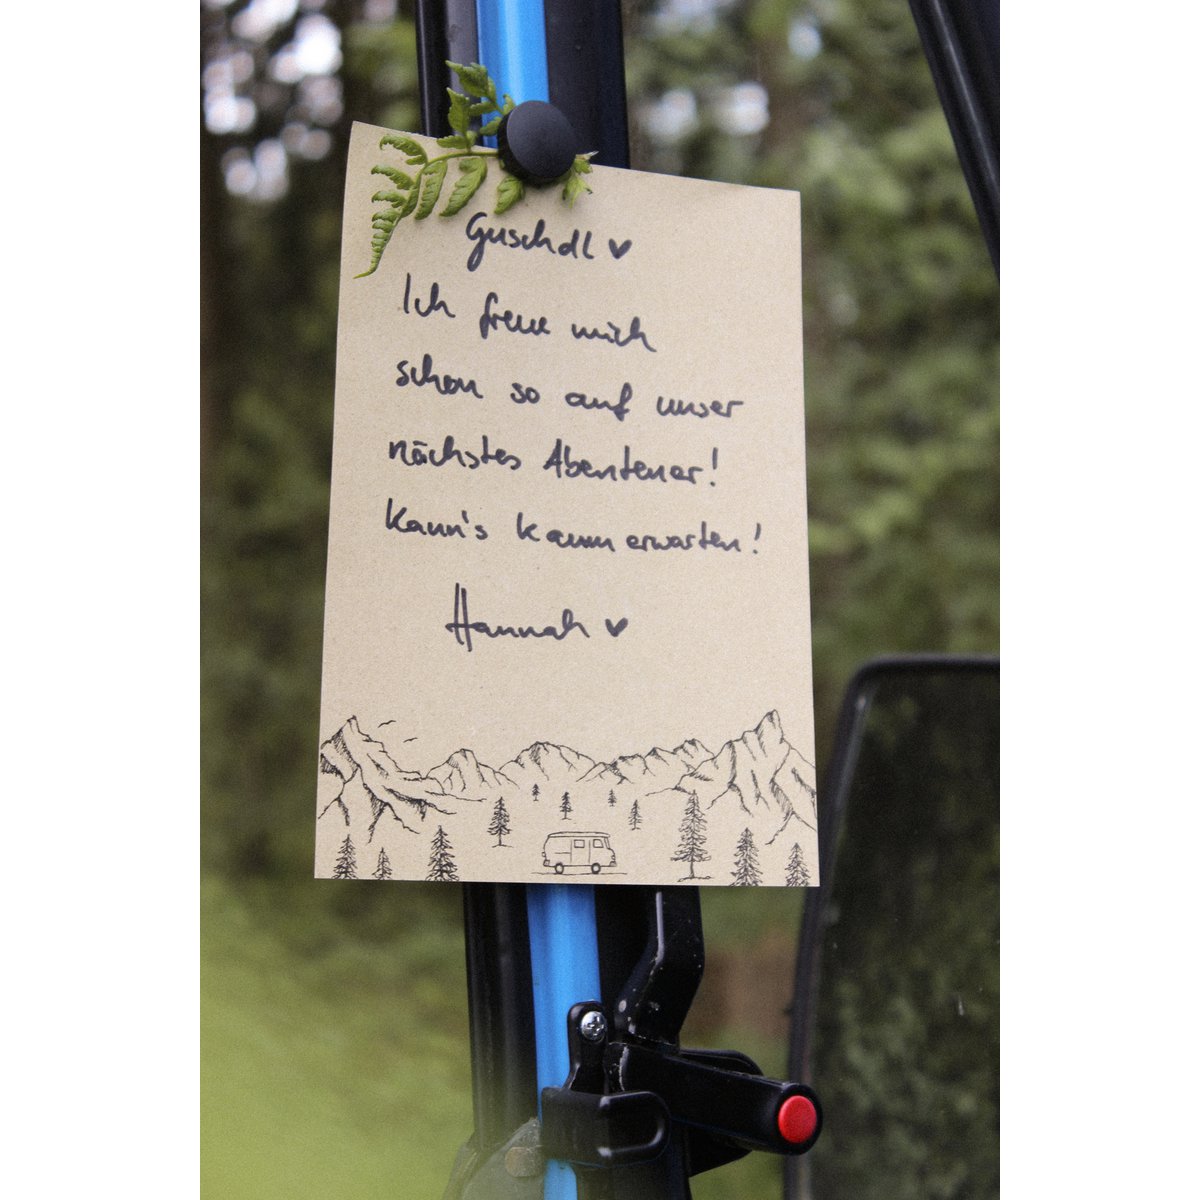 Guschdl ♥
Ich freue mich
schon so auf unser
nächstes Abenteuer!
Kann's kaum erwarten!
Hannah ♥